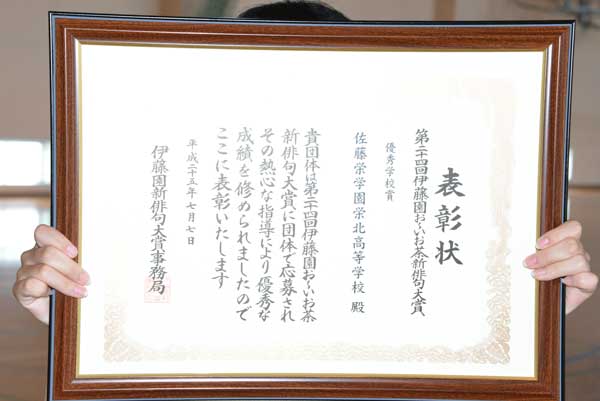 表彰状
第二十四回伊藤園おーいお茶新俳句大賞
優秀学校賞
佐藤栄学園栄北高等学校 殿
貴団体は第二十四回伊藤園おーいお茶
新俳句大賞に団体で応募され
その熱心な指導により優秀な
成績を修められましたので
ここに表彰いたします
平成二十五年七月七日
伊藤園新俳句大賞事務局